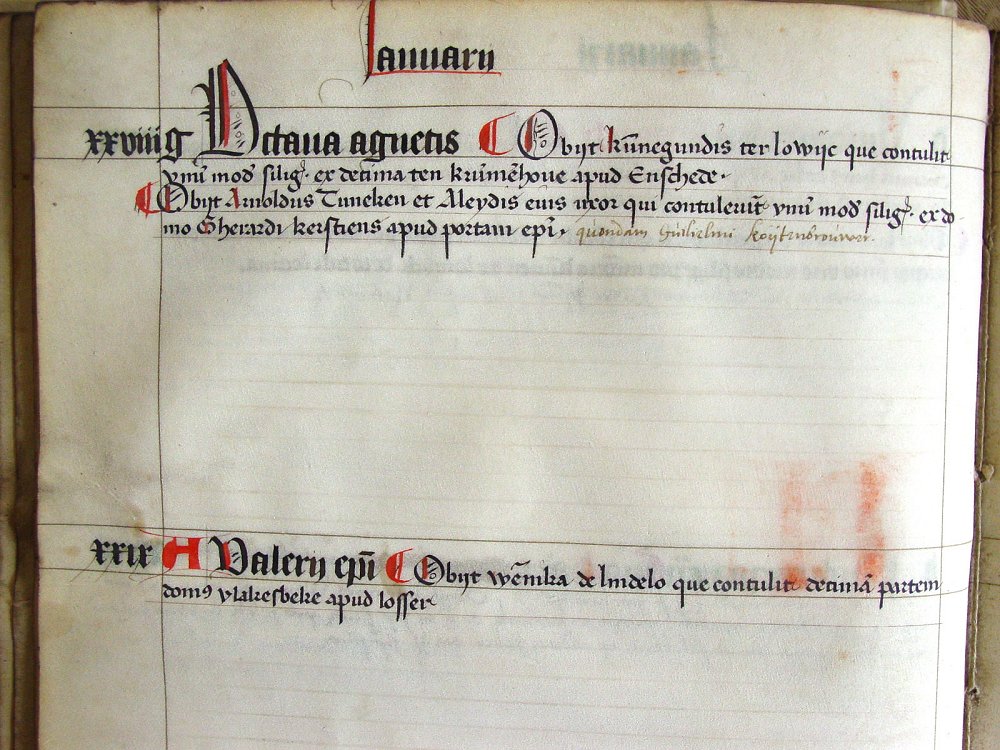 Ianuarij
xxviiij g Octaua agnetis Obijt kūnegundis ter lowijc que contulit
vnū mod̄ silig̃ ex decima ten krūmēhoue apud Enschede.
Obijt Arnoldus Tuneken et Aleydis euis uxor qui contulerūt vnū mod̄ silig̃ ex do
mo Gherardi kerstiens apud portam ep̄i. quondam Guilielmi
xxix A Valerij ep̄i Obijt wēnika de lindelo que contulit decimā partem
domꝰ vlakesbeke apud losser